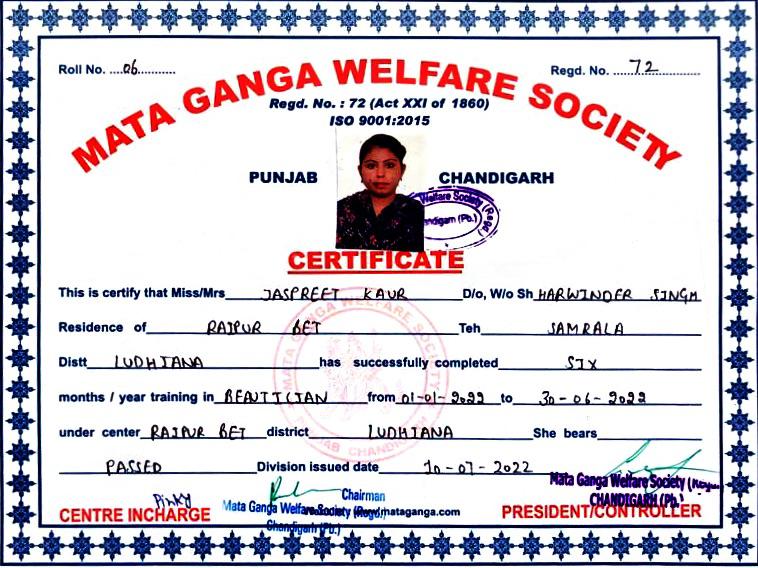 Roll No. ....06............ Regd. No. ....72............
MATA GANGA WELFARE SOCIETY
Regd. No. : 72 (Act XXI of 1860)
ISO 9001:2015
PUNJAB CHANDIGARH
Welfare Society (Regd.)
Chandigarh (Pb.)
CERTIFICATE
This is certify that Miss/Mrs JASPREET KAUR D/o, W/o Sh HARWINDER SINGH
Residence of RAIPUR BET Teh SAMRALA
Distt LUDHIANA has successfully completed SIX
months / year training in BEAUTICIAN from 01-01-2022 to 30-06-2022
under center RAIPUR BET district LUDHIANA She bears
PASSED Division issued date 10-07-2022
MATA GANGA WELFARE SOCIETY
PUNJAB CHANDIGARH
Mata Ganga Welfare Society (Regd.)
CHANDIGARH (Pb.)
Pinky
Chairman
Mata Ganga Welfare Society (Regd.)
Chandigarh (Pb.)
CENTRE INCHARGE mataganga.com PRESIDENT/CONTROLLER